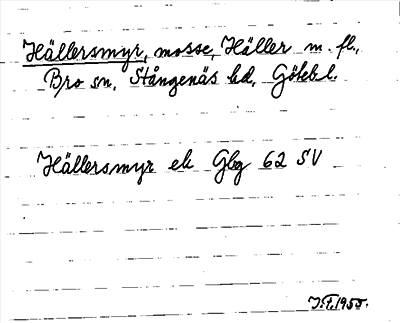 Hällersmyr, mosse, Häller m. fl.,
Bro sn, Stångenäs hd, Göteb. l.
Hällersmyr ek Gbg 62 SV
J.T. 1955.